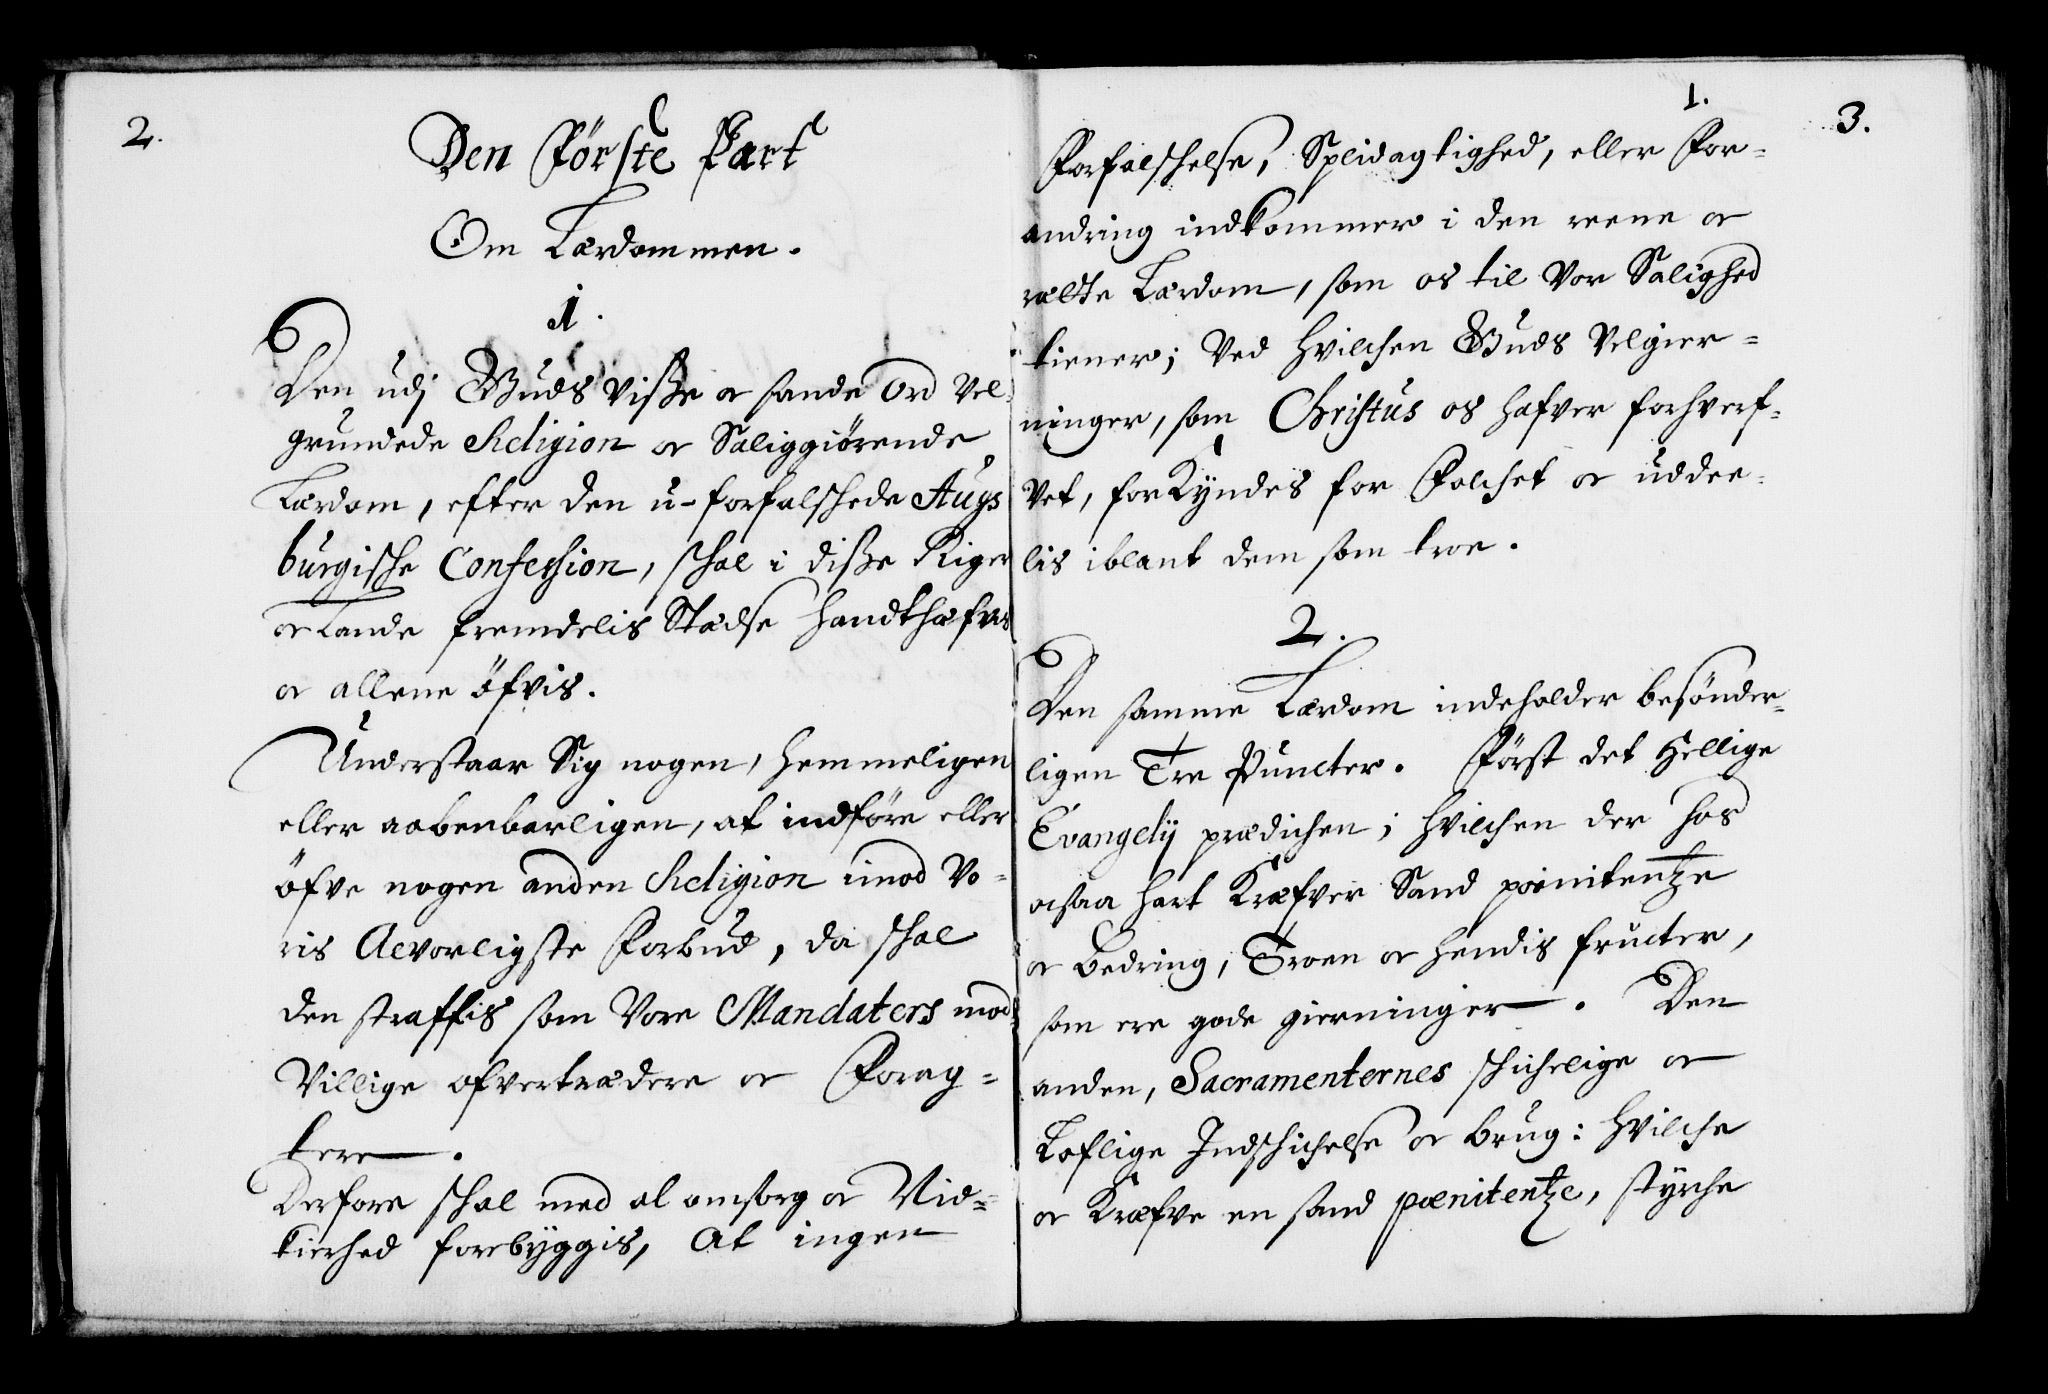 2.
Den Förste Part
Om Lærdommen.
1.
Den udj Guds visse oc sande Ord vel
grundede Religion oc Saliggiörende
Lærdom, efter den u-forfalschede Augs
burgische Confession, schal i disse Riger
oc Lande fremdelis Stædse handthæfvis
oc allene öfvis.
Understaar Sig nogen, hemmeligen
eller aabenbarligen, at indföre eller
öfve nogen anden Religion imod Vo-
ris Alvorligste Forbud, da schal
den straffis som Vore Mandaters mod
Villige ofvertrædere oc Forag-
tere.
Derfore schal med al omsorg oc Vid-
tierhed forebÿggis, At ingen
1.
3.
Forfalschelse, Splidagtighed, eller For-
andring indkommer i den reene oc
rætte Lærdom, som os til Vor Salighed
tiener; Ved hvilchen Guds Velgier-
ninger, som Christus os hafver forhverf-
vet, forkÿndes for Folchet oc uddee-
lis iblant dem som troe.
2.
Den samme Lærdom indeholder besönder-
ligen Tre Puncter. Först det Hellige
Evangelÿ prædichen; hvilchen der hos
ocsaa hart Kræfver Sand poenitentze
oc Bedring, Troen oc hendis fructer,
som ere gode gierninger. Den
anden, Sacramenternes schichelige oc
Loflige Indschichelse oc brug: hvilche
oc Kræfve en sand pœnitentze, stÿrche